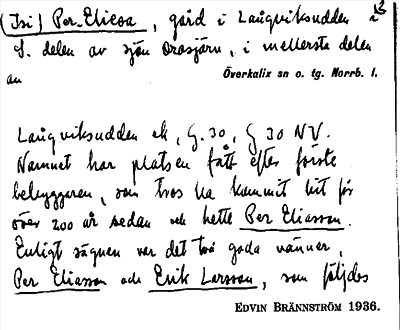 (Isi) Per-Eliesa, gård i Långviksudden i
S. delen av sjön Orasjärv, i mellersta delen
av
Överkalix sn o. tg. Norrb. l.
Långviksudden ek, G. 30, G 30 NV.
Namnet har platsen fått efter förste
bebyggaren, som tros ha kommit hit för
över 200 år sedan och hette Per Eliasson.
Enligt sägnen var det två goda vänner,
Per Eliasson och Erik Larsson, som följdes
EDVIN BRÄNNSTRÖM 1936.